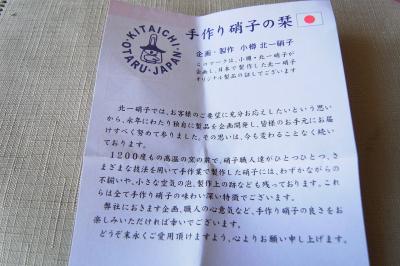 KITAICHI・OTARU・JAPAN
手作り硝子の栞
企画・製作 小樽 北一硝子
このマークは、小樽・北一硝子が
企画し、日本で製作した北一硝子
オリジナル製品の証してございます
北一硝子では、お客様のご要望に充分お応としたいという思い
から、永年にわたり独自に製品を企画開発し皆様のお手元にお届
けすべく努めて参りました。その思いは、今も変わることなく続い
ております。
1200度もの高温の窯の前で、硝子職人達がひとつひとつ、さ
まざまな技法を用いて手作業で製作した硝子には、わずかながらの
不揃いや、小さな空気の泡、製作上の跡なども残っております。これ
らは全て手作り硝子の味わい深い特徴でございます。
弊社におきます企画、職人の心意気など、手作り硝子の良さをお
楽しみいただければ幸いでございます。
どうぞ末永くご愛用頂けますよう、心よりお願い申し上げます。